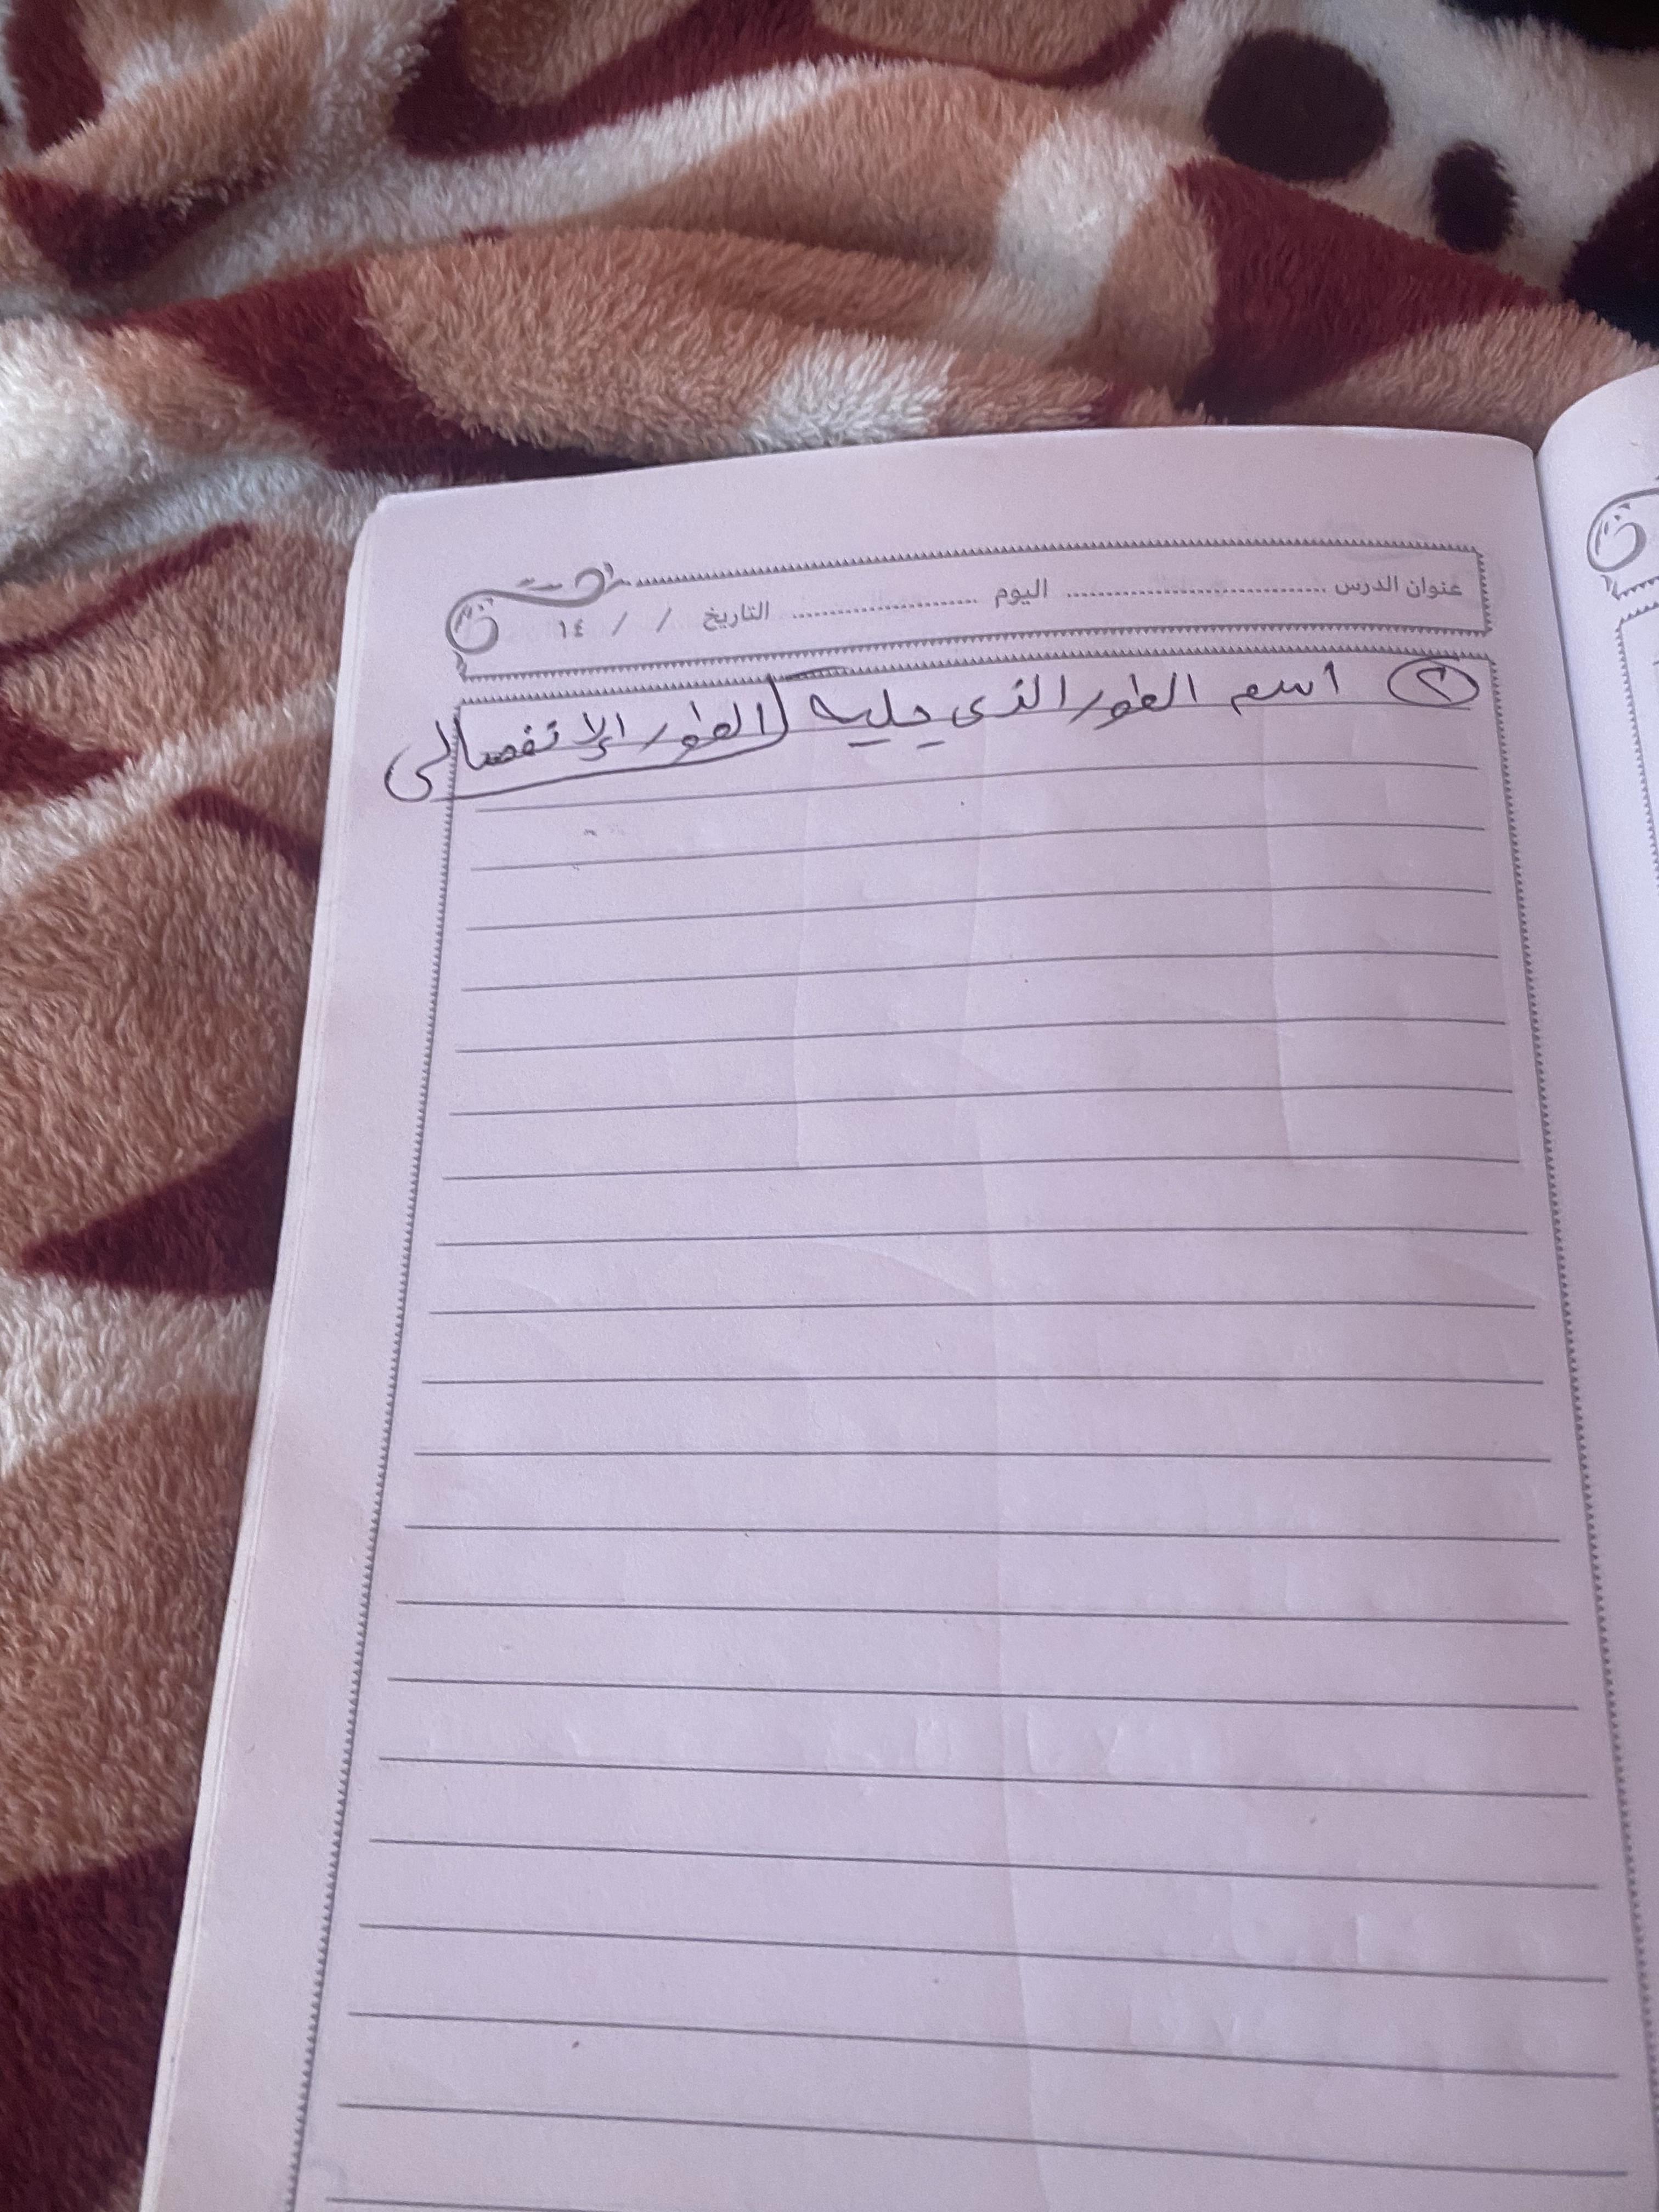 عنوان الدرس ............ اليوم ............ التاريخ / / ١٤
٢ اسم الطور الذى يليه الطور الإنفصالى